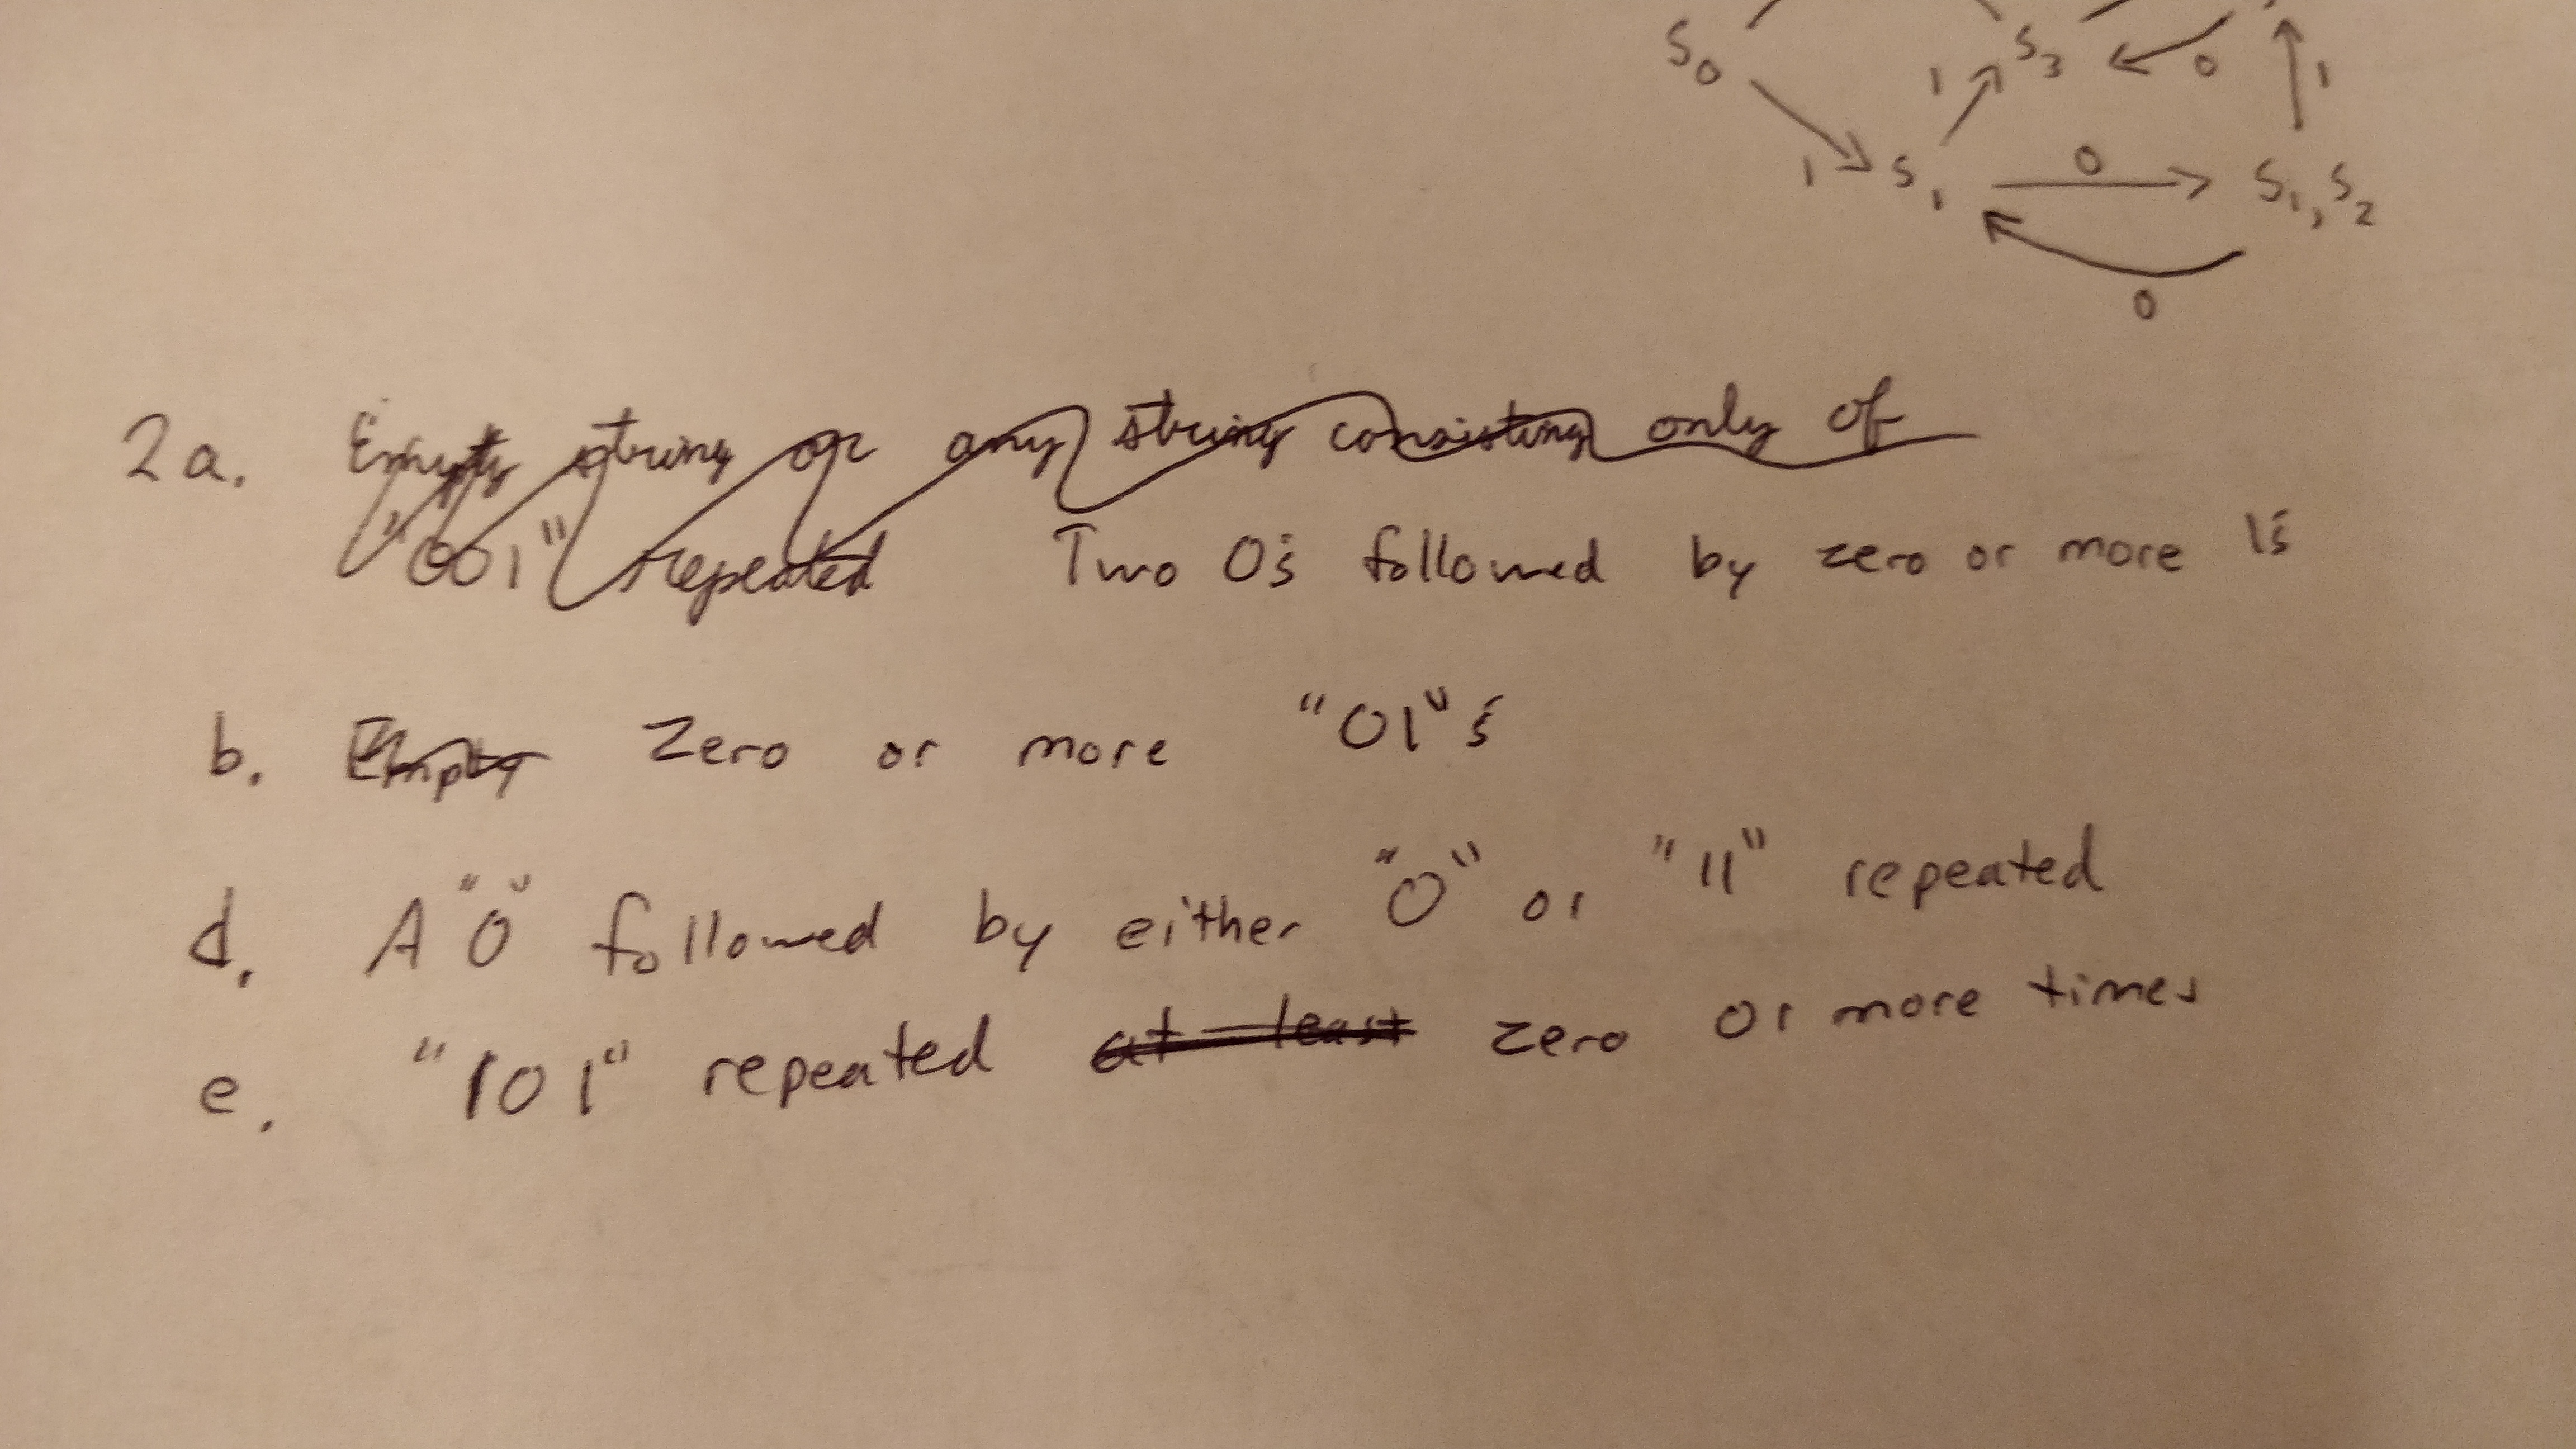 S0 S3 0 1
1
1 S1 0 S1, S2
0
2a. Empty string or any string consisting only of
"001" repeated Two 0's followed by zero or more 1s
b. Empty Zero or more "01"s
d. A "0" followed by either "0" or "11" repeated
e. "101" repeated at least zero or more times